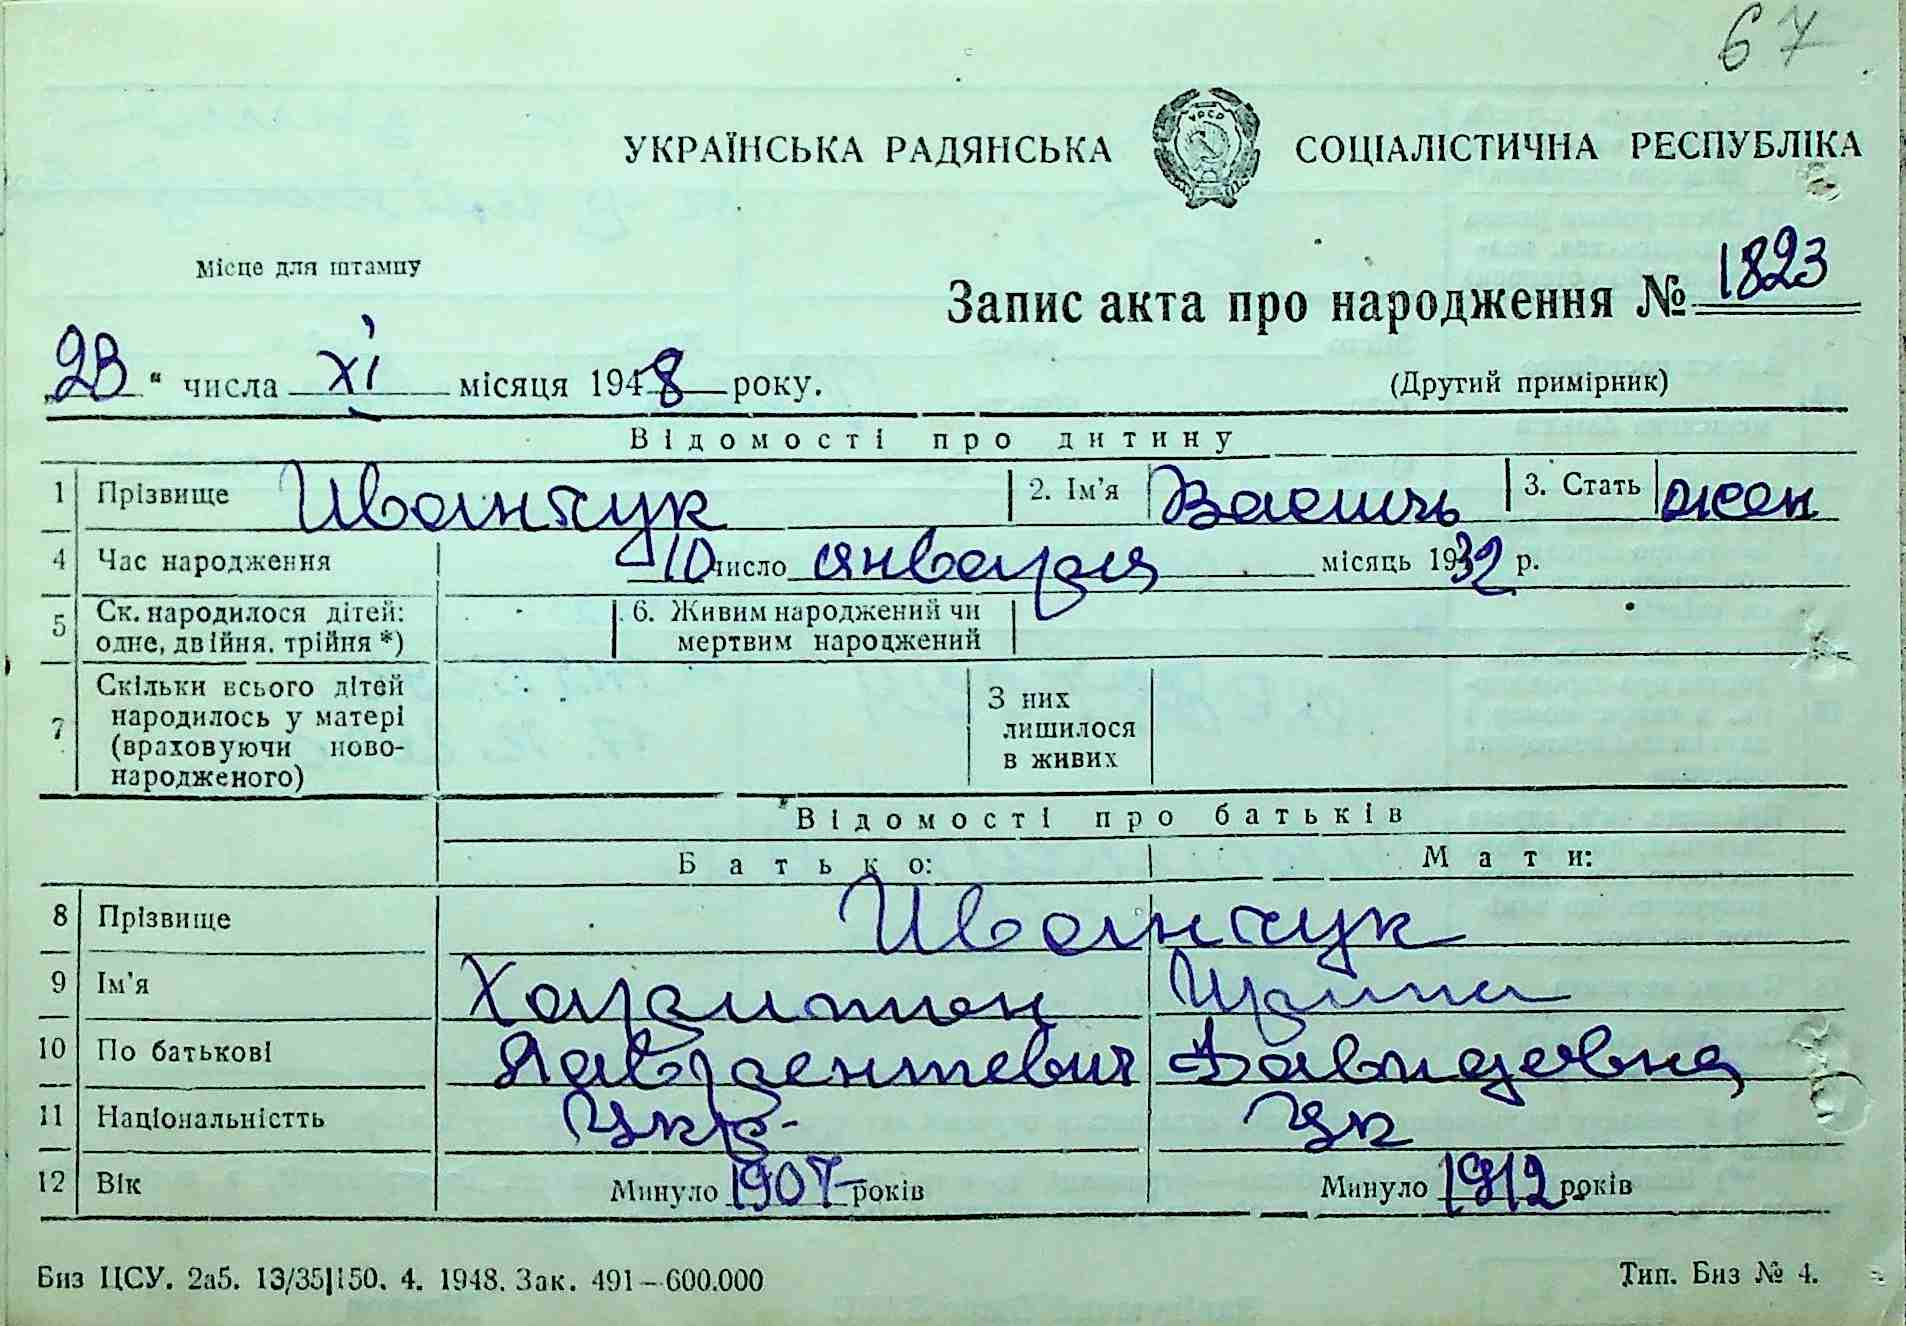 67
УКРАЇНСЬКА РАДЯНСЬКА СОЦІАЛІСТИЧНА РЕСПУБЛІКА
УРСР
Місце для штампу
Запис акта про народження № 1823
„23" числа XI місяця 1948 року.
(Другий примірник)
Відомості про дитину
1 Прізвище Иванчук 2. Ім'я 3. Стать жен
4 Час народження 10 число января місяць 1932 р.
5 Ск. народилося дітей: одне, двійня, трійня *) 6. Живим народжений чи мертвим народжений
7 Скільки всього дітей народилось у матері (враховуючи новонародженого) З них лишилося в живих
Відомості про батьків
Батько: Мати:
8 Прізвище Иванчук
9 Ім'я Харитон Ирина
10 По батькові Лаврентевич Давидовна
11 Національністть Укр- Ук
12 Вік Минуло 1907 років Минуло 1912 років
Биз ЦСУ. 2а5. 13/35|150. 4. 1948. Зак. 491—600.000 Тип. Биз № 4.